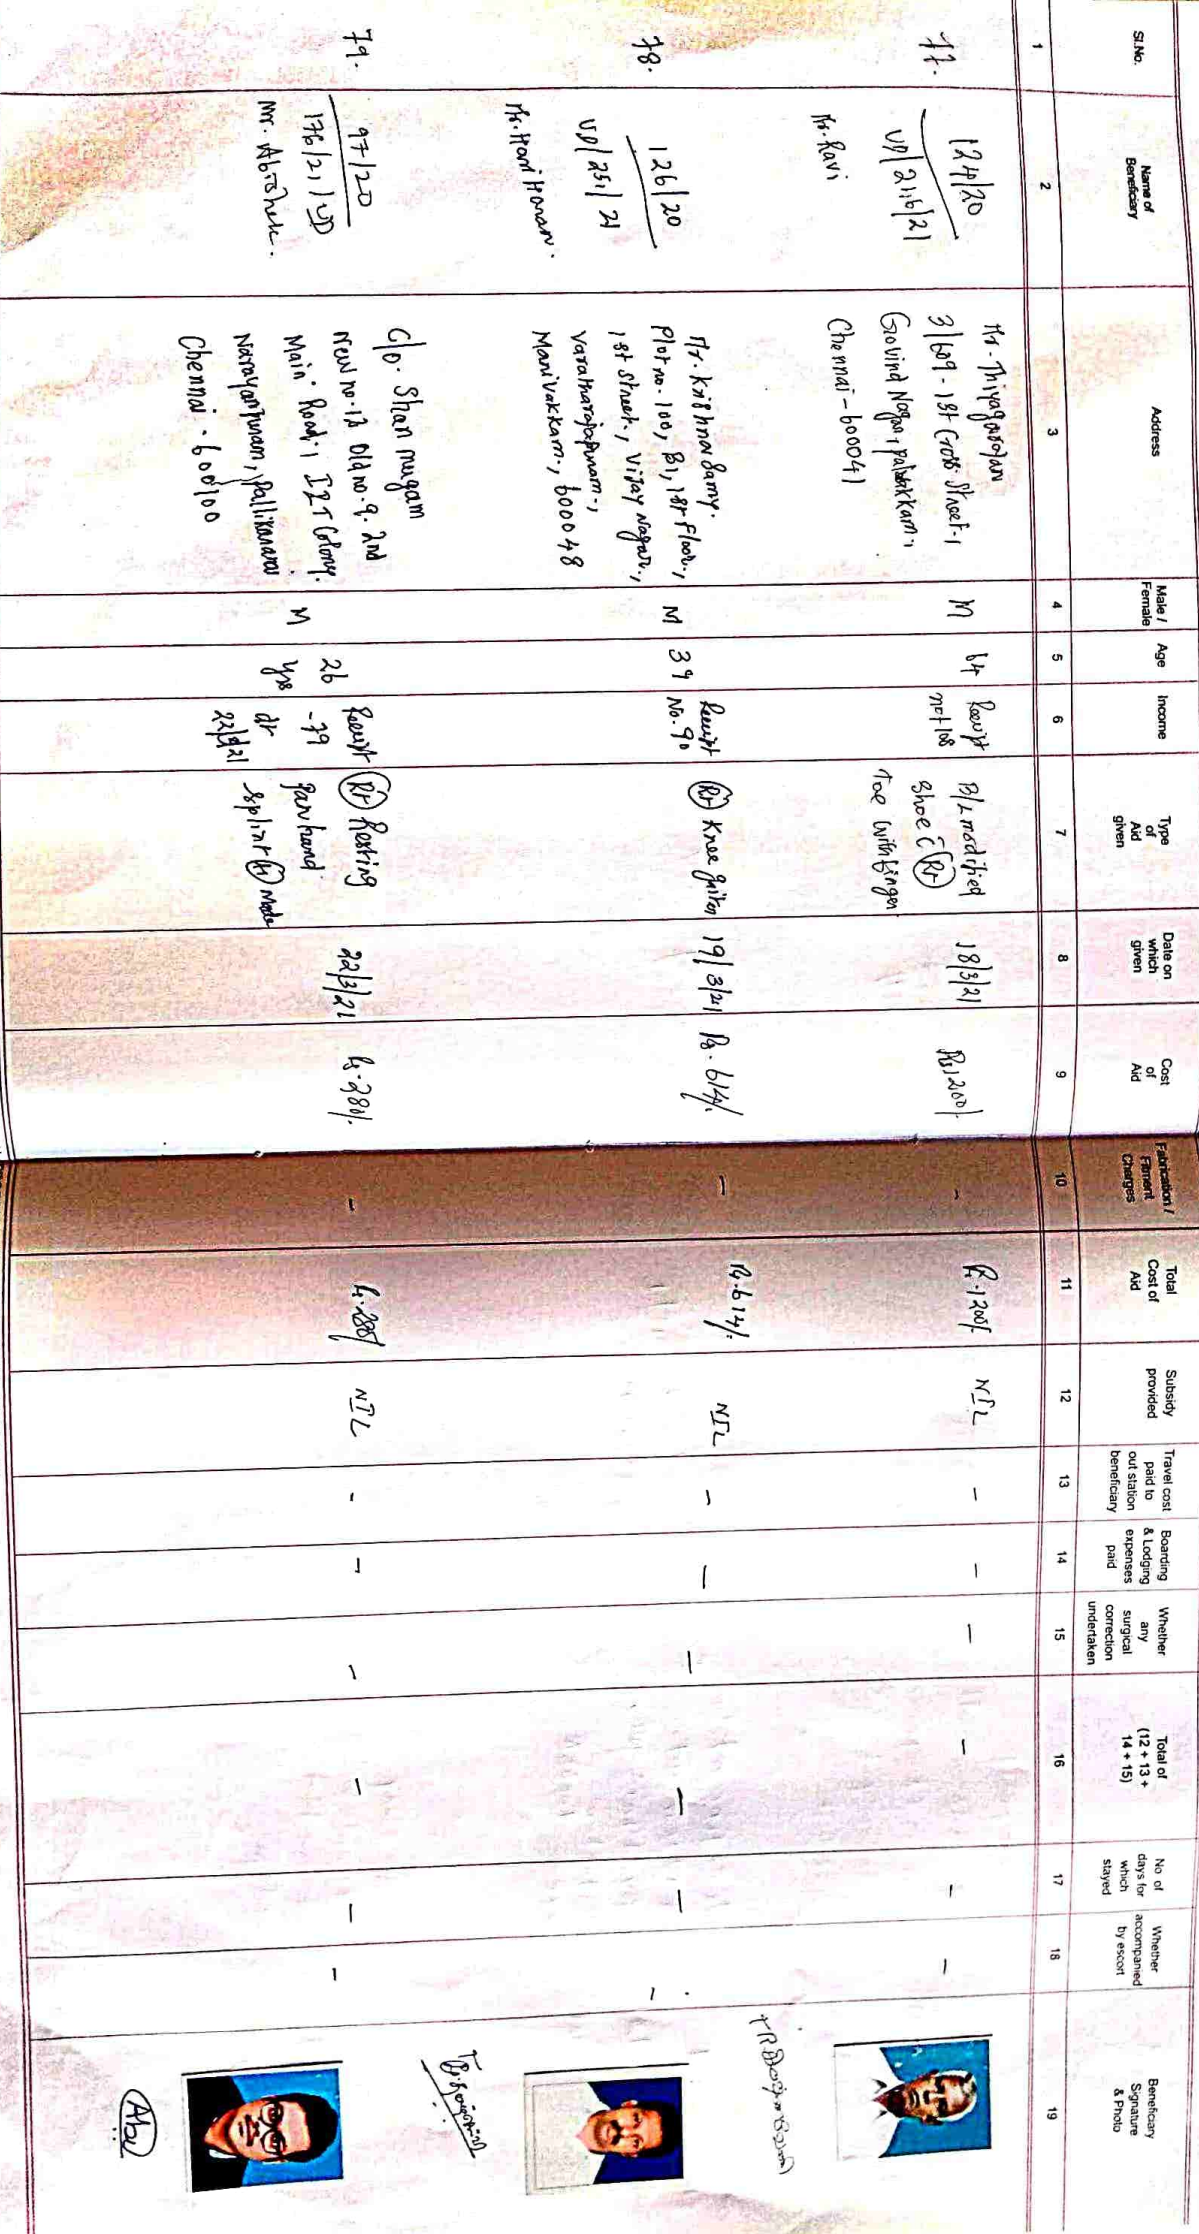 Sl.No.
Name of
Beneficiary
Address
Male /
Female
Age
Income
Type
of
Aid
given
Date on
which
given
Cost
of
Aid
Fabrication /
Fitment
Charges
Total
Cost of
Aid
Subsidy
provided
Travel cost
paid to
out station
beneficiary
Boarding
& Lodging
expenses
paid
Whether
any
surgical
correction
undertaken
Total of
(12 + 13 +
14 + 15)
No of
days for
which
stayed
Whether
accompanied
by escort
Beneficiary
Signature
& Photo
1 2 3 4 5 6 7 8 9 10 11 12 13 14 15 16 17 18 19
77.
124/20
UD/216/21
Mr. Ravi
Mr. Thiyagarajan
3/609 - 1st Cross Street,
Govind Nagar, Palavakkam,
Chennai - 600041
M
64
Receipt
no 108
B/L modified
Shoe c̄ (Rt)
Toe with finger
18/3/21
Rs 1200/-
-
Rs. 1200/-
NIL
-
-
-
-
-
-
78.
126/20
UD/251/21
Mr. Hari Haran.
Mr. Krishnasamy.
Plot no. 100, B1, 1st Floor.,
1st Street., Vijay Nagar.,
Varatharajapuram.,
Manivakkam., 600048
M
39
Receipt
No. 90
(Rt) Knee gaiter
19/3/21
Rs. 614/-
-
Rs. 614/-
NIL
-
-
-
-
-
-
79.
97/20
176/21/UD
Mr. Abishek.
C/o. Shanmugam
New no. 12 Old no. 9. 2nd
Main Road, IIT Colony.
Narayanapuram, Pallikaranai
Chennai - 600100
M
26
yrs
Receipt
- 79
dt
22/3/21
(Rt) Resting
pan hand
splint
22/3/21
Rs. 280/-
-
NIL
-
-
-
-
-
-
Abi